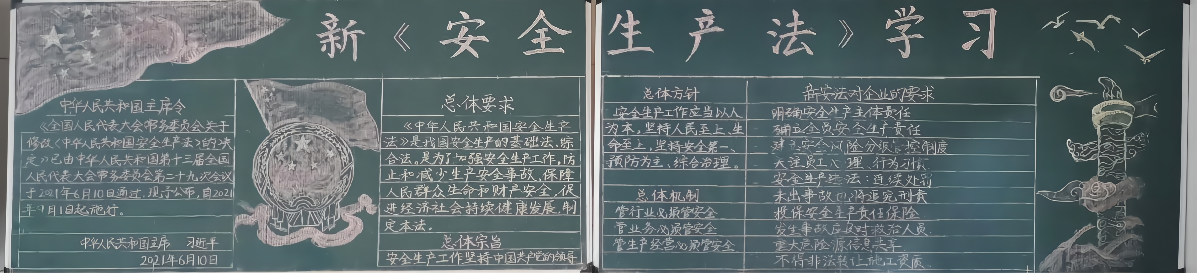 新《安全生产法》学习
中华人民共和国主席令
《全国人民代表大会常务委员会关于
修改〈中华人民共和国安全生产法〉的决
定》已由中华人民共和国第十三届全国
人民代表大会常务委员会第二十九次会议
于2021年6月10日通过,现予公布,自2021
年9月1日起施行。
中华人民共和国主席 习近平
2021年6月10日
总体要求
《中华人民共和国安全生产
法》是我国安全生产的基础法、综
合法。是为了加强安全生产工作,防
止和减少生产安全事故,保障
人民群众生命和财产安全,促
进经济社会持续健康发展,制
定本法。
总体宗旨
安全生产工作坚持中国共产党的领导
总体方针
安全生产工作应当以人
为本,坚持人民至上、生
命至上,坚持安全第一、
预防为主、综合治理。
总体机制
管行业必须管安全
管业务必须管安全
管生产经营必须管安全
新安法对企业的要求
明确安全生产主体责任
明确全员安全生产责任
建立安全风险分级管控制度
关注员工心理、行为习惯
安全生产违法:连续处罚
未出事故也将追究刑责
投保安全生产责任保险
发生事故后及时救治人员
重大危险源信息共享
不得非法转让施工资质